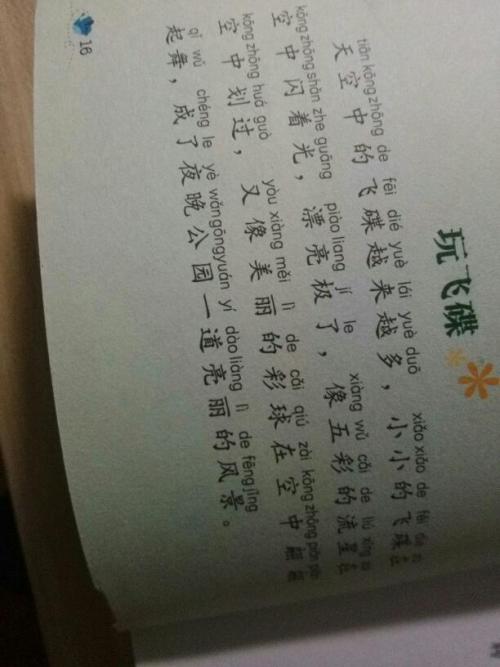 玩飞碟
tiān kōng zhōng de fēi dié yuè lái yuè duō xiǎo xiǎo de fēi dié
天空中的飞碟越来越多，小小的飞碟在
kōng zhōng shǎn zhe guāng piào liang jí le xiàng wǔ cǎi de liú xīng
空中闪着光，漂亮极了，像五彩的流星在
kōng zhōng huá guò yòu xiàng měi lì de cǎi qiú zài kōng zhōng piān piān
空中划过，又像美丽的彩球在空中翩翩
qǐ wǔ chéng le yè wǎn gōng yuán yí dào liàng lì de fēng jǐng
起舞，成了夜晚公园一道亮丽的风景。
16